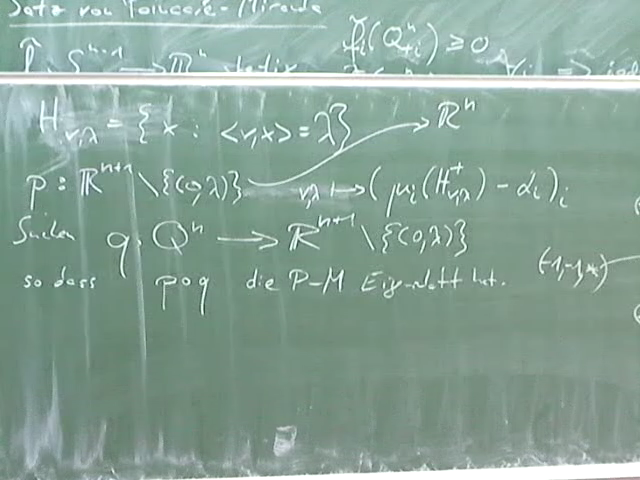 Satz von Poincaré-Miranda
f̃ᵢ(Qⁿ₊ᵢ) ≥ 0
f̂: Sⁿ⁺¹ → ℝⁿ stetig ∀i ⇒
H_{v,λ} = { x : <v,x> = λ } ℝⁿ
p : ℝⁿ⁺¹ \ {(0,λ)} v,λ ↦ ( μᵢ(H⁺_{v,λ}) - αᵢ )ᵢ
Suchen q : Qⁿ → ℝⁿ⁺¹ \ {(0,λ)}
so dass p∘q die P-M Eigenschaft hat. (-1,-1,*)